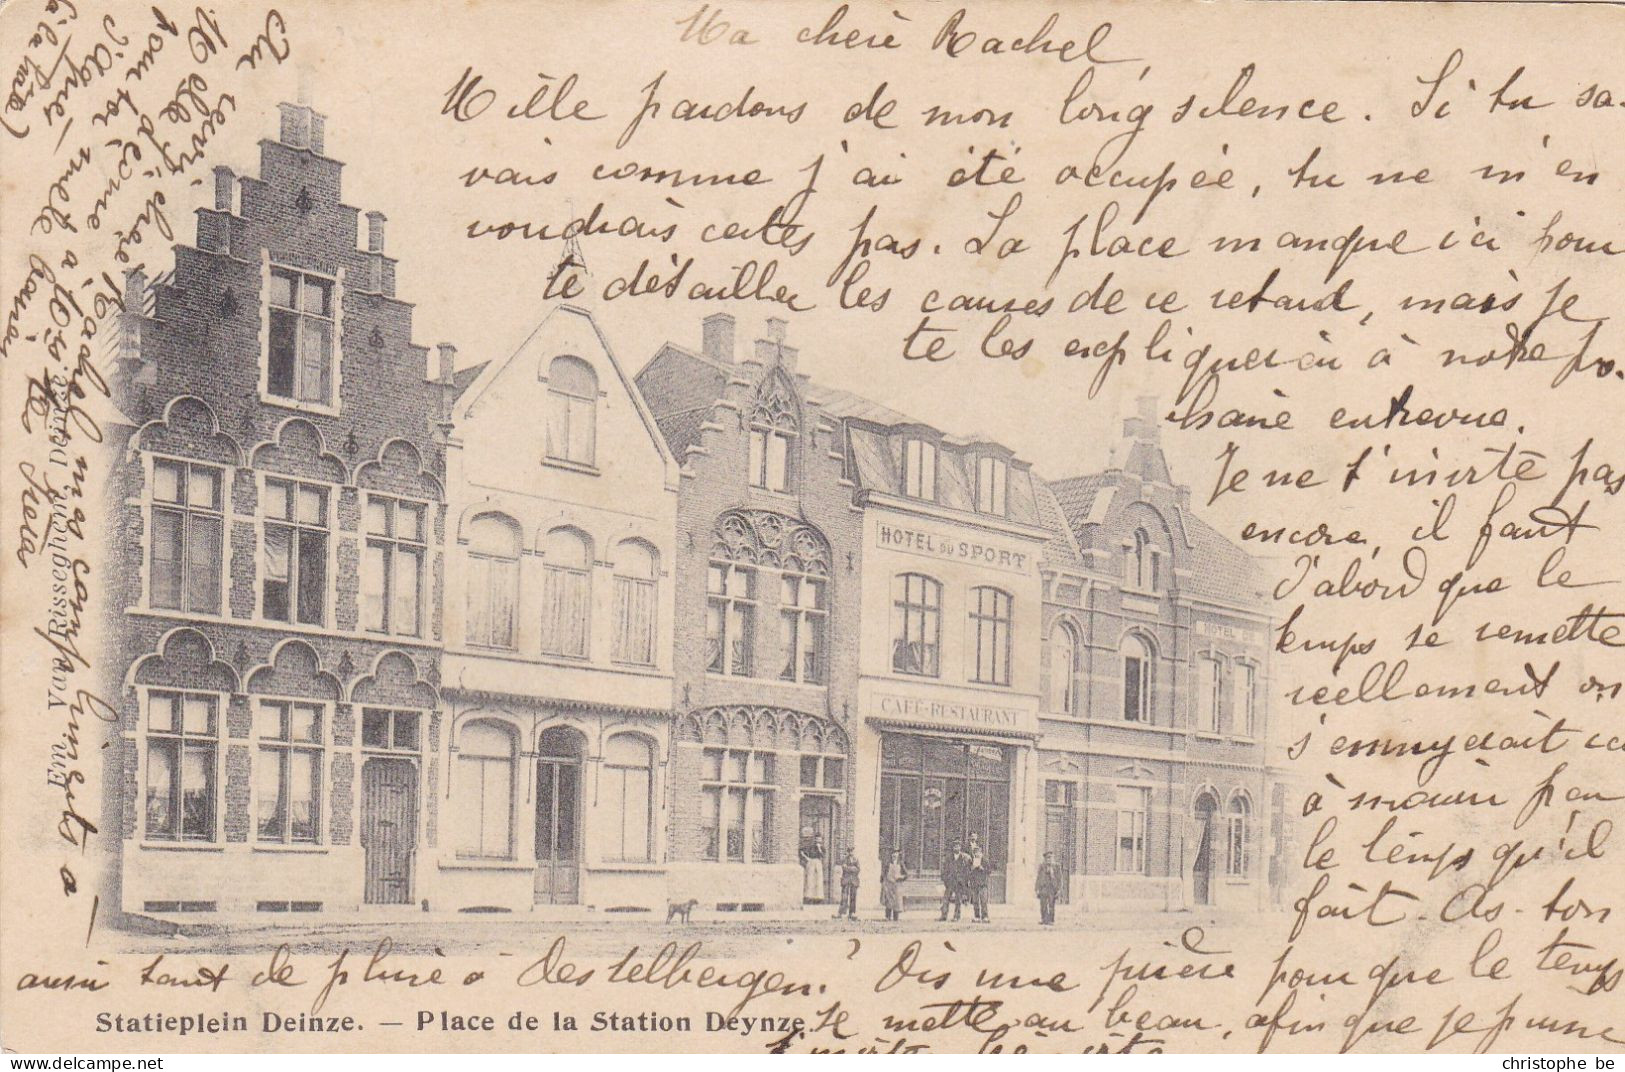 Ma chère Rachel,
Mille pardons de mon long silence. Si tu sa-
vais comme j'ai été occupée, tu ne m'en
voudrais certes pas. La place manque ici pour
te détailler les causes de ce retard, mais je
te les expliquerai à notre pro-
chaine entrevue.
Je ne t'invite pas
encore, il faut
d'abord que le
temps se remette
réellement on
s'ennuyerait ici
à mourir par
le temps qu'il
fait. As-ton
aussi tant de pluie à Destelbergen? Dis une prière pour que le temps
se mette au beau, afin que je puisse
t'inviter bien vite
Au revoir
chère Rachel mes compliments a
mille baisers
(à la hâte)
HOTEL DU SPORT
CAFÉ-RESTAURANT
HOTEL DE
Em. Van Risseghem, Deinze
Statieplein Deinze. — Place de la Station Deynze.
christophe be